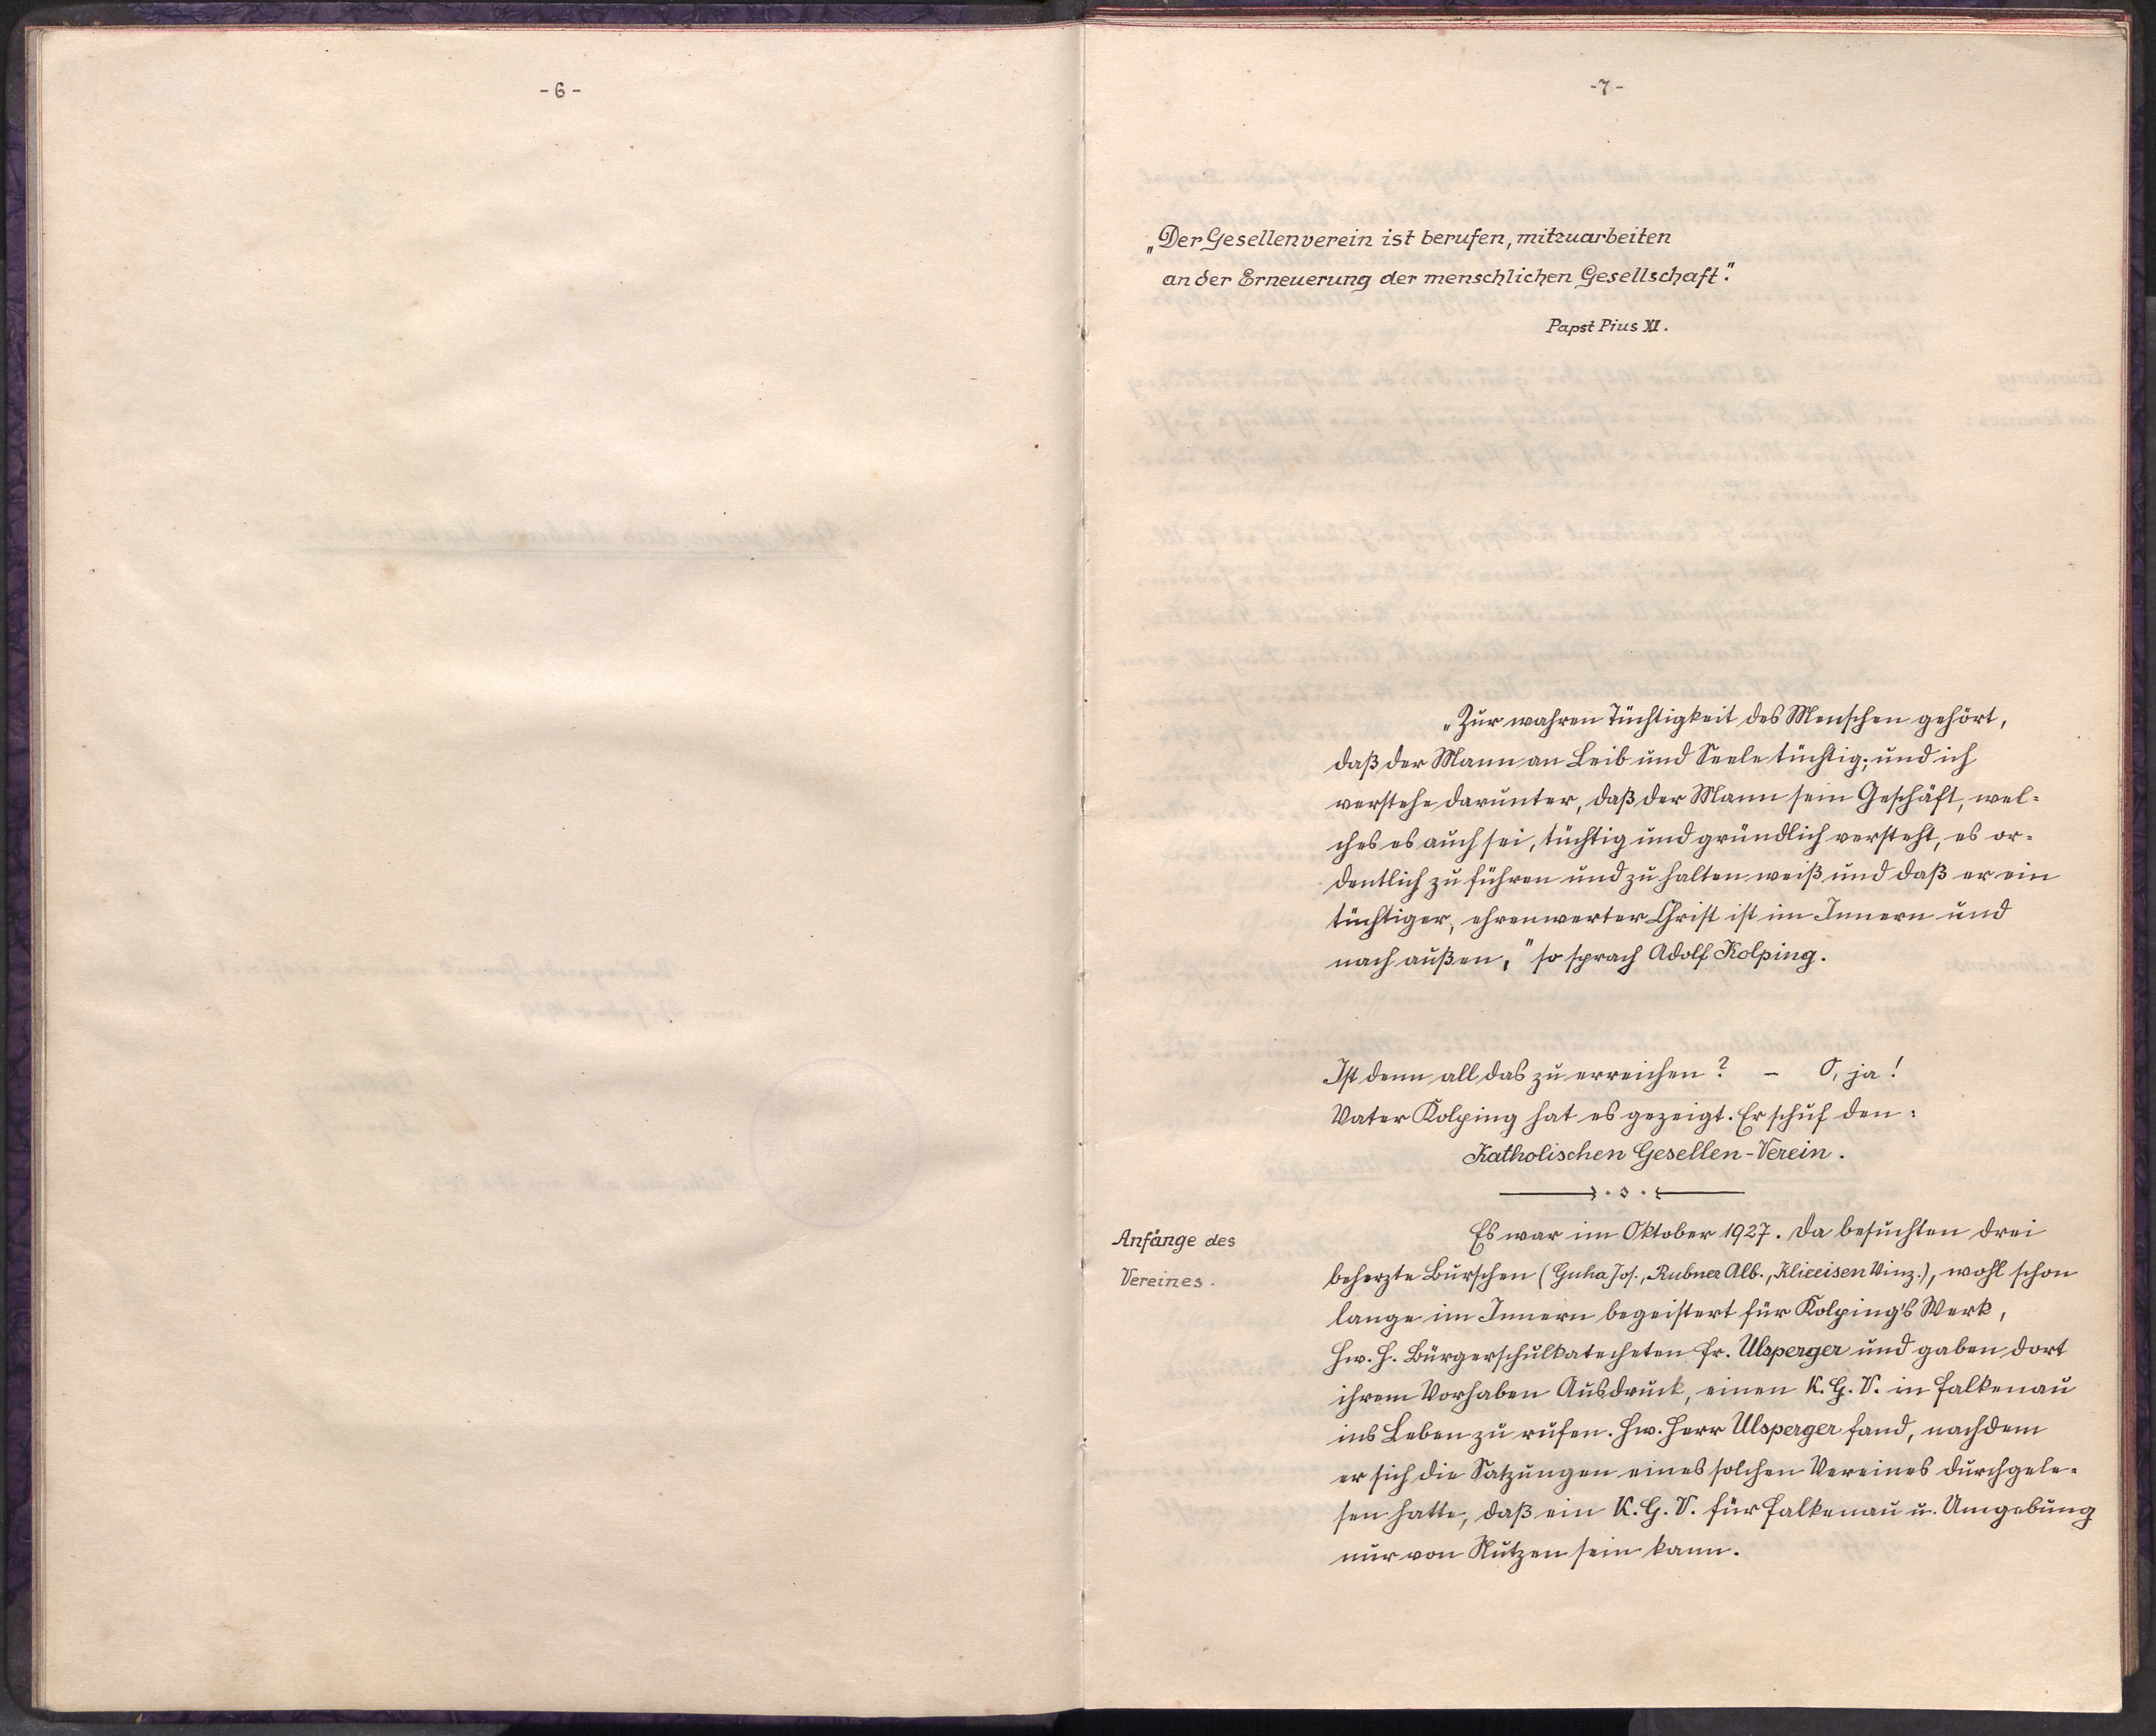 - 6 -
- 7 -
„Der Gesellenverein ist berufen, mitzuarbeiten
an der Erneuerung der menschlichen Gesellschaft."
Papst Pius XI.
„Zur wahren Tüchtigkeit des Menschen gehört,
daß der Mann an Leib und Seele tüchtig; und ich
verstehe darunter, daß der Mann sein Geschäft, wel-
ches es auch sei, tüchtig und gründlich versteht, es or-
dentlich zu führen und zu halten weiß und daß er ein
tüchtiger, ehrenwerter Christ ist im Innern und
nach außen," so sprach Adolf Kolping.
Ist denn all das zu erreichen? – O, ja!
Vater Kolping hat es gezeigt. Er schuf den:
Katholischen Gesellen-Verein.
Anfänge des
Vereines.
Es war im Oktober 1927. Da besuchten drei
beherzte Burschen (Guha Jos., Rubner Alb., Klieeisen Vinz.), wohl schon
lange im Innern begeistert für Kolping's Werk,
Hw. H. Bürgerschulkatecheten Fr. Ulsperger und gaben dort
ihrem Vorhaben Ausdruck, einen K. G. V. in Falkenau
ins Leben zu rufen. Hw. Herr Ulsperger fand, nachdem
er sich die Satzungen eines solchen Vereines durchgele-
sen hatte, daß ein K. G. V. für Falkenau u. Umgebung
nur von Nutzen sein kann.